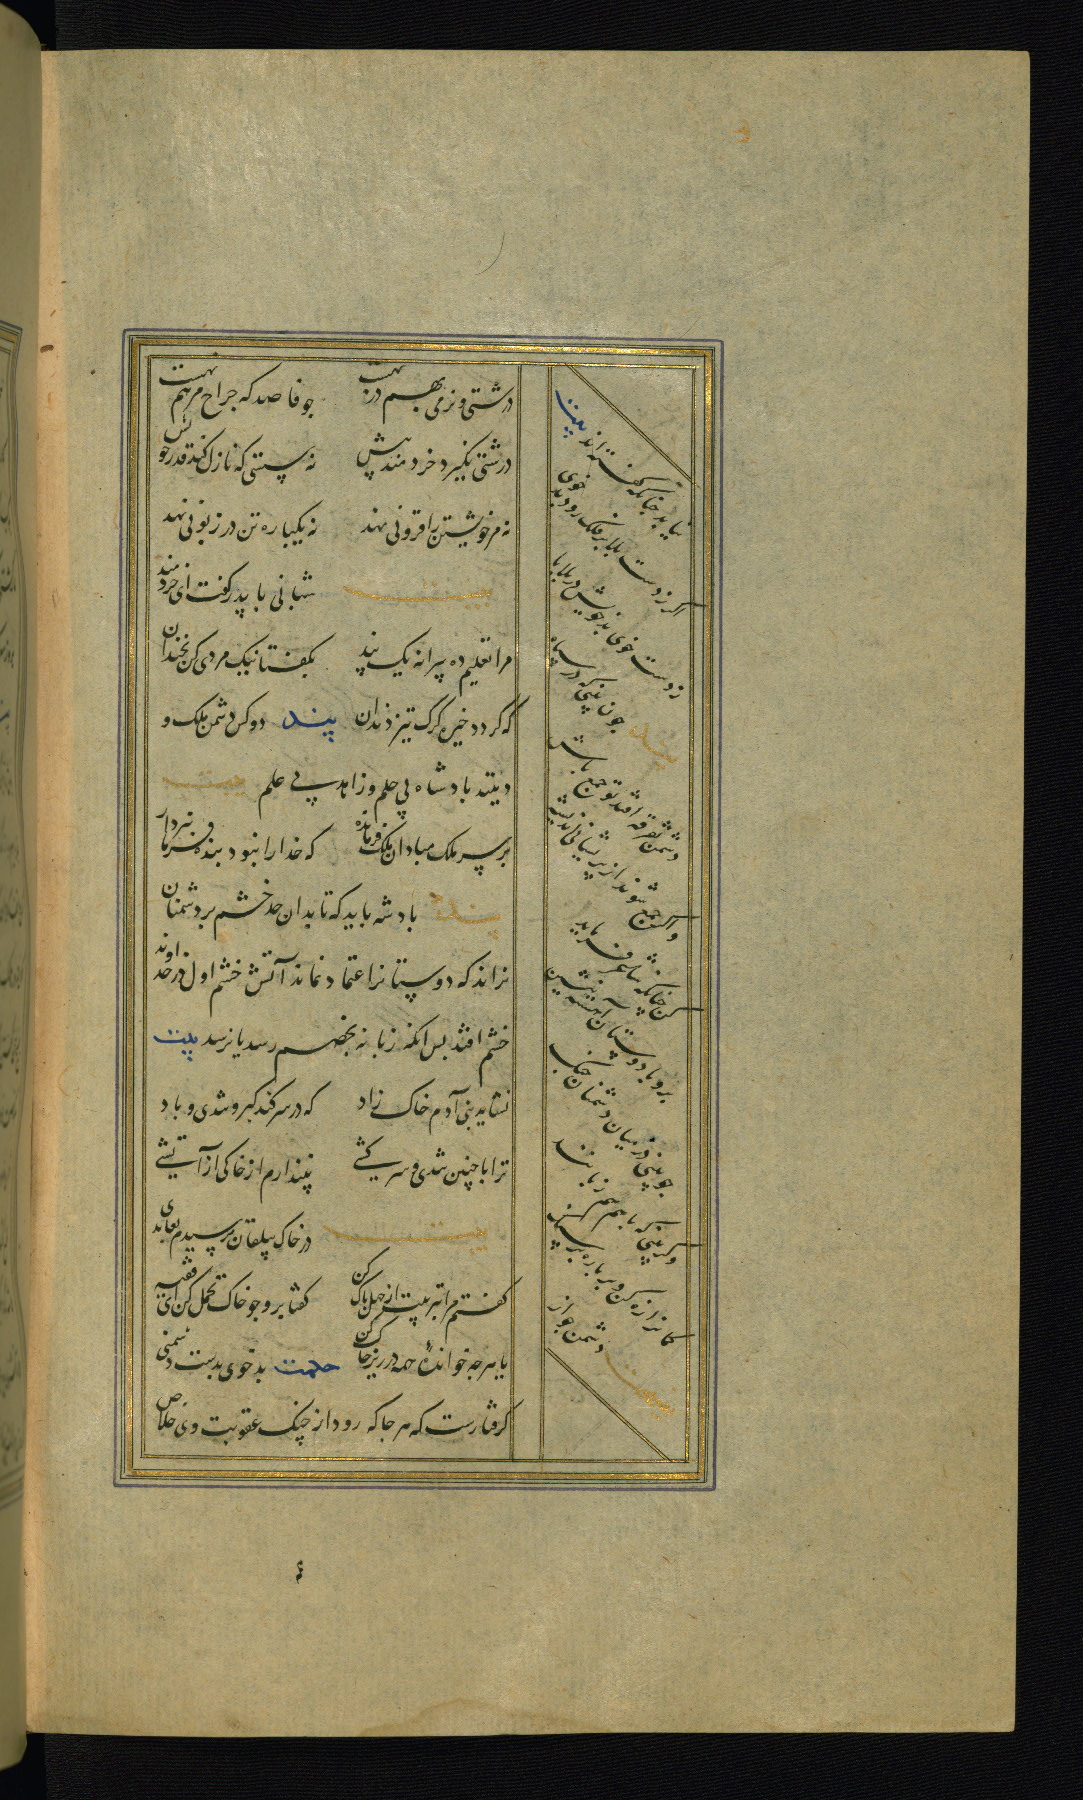 درشتی و نرمی بهم در بهست جو فاصد که جراح مرهم نهست
درشتی نکیرد خردمند پیش نه سستی که نازل کند قدر خویش
نه مر خویشتن را فزونی نهد نه یکباره تن در زبونی نهد
شبانی با پدر کفت ای خردمند
مرا تعلیم ده پیرانه یک پند بکفتا نیک مردی کن نخندان
که کردد خیره کرک تیز دندان پند دو کس دشمن ملک و
دینند بادشاه بی حلم و زاهد بی علم
بر سر ملک مباد آن ملک فرمانده که خدا را نبود بنده فرمان بردار
پند بادشه باید که تا بدان حد خشم بر دشمنان
نراند که دوستانرا اعتماد نماند آتش خشم اول در خداوند
خشم افتد بس انکه زبانه بخصم رسد یا نرسد بیت
نشاید بنی آدم خاک زاد که در سر کند کبر و تندی و باد
ترا با چنین تندی و سرکشی نپندارم از خاکی از آتشی
در خاک بیلقان برسیدم بعابدی
کفتم مرا بتربیت از جهل باک کن کفتا برو جو خاک تحمل کن ای فقیه
یا هرجه خوانده همه در زیر خاک کن حکمت بد خوی بدست دشمنی
کرفتارست که هر جا که رود از چنک عقوبت وی خلاص
نیابد چنانکه کفته اند بیت
اکر ز دست بلا بر فلک رود بد خوی
ز دست خوی بد خویش در بلا باشد
پند جون بینی که در سپاه
دشمن تفرقه افتد تو جمع باش
و اکر جمع شوند از پریشانی اندیشه
کن چنانکه شاعر فرماید
برو با دوستان آهسته بنشین
جو بینی در میان دشمنان جنک
وکر بینی که با هم هم زبانند
کمانرا زه کن و بر باره بر سنک
نصیحت دشمن جو از